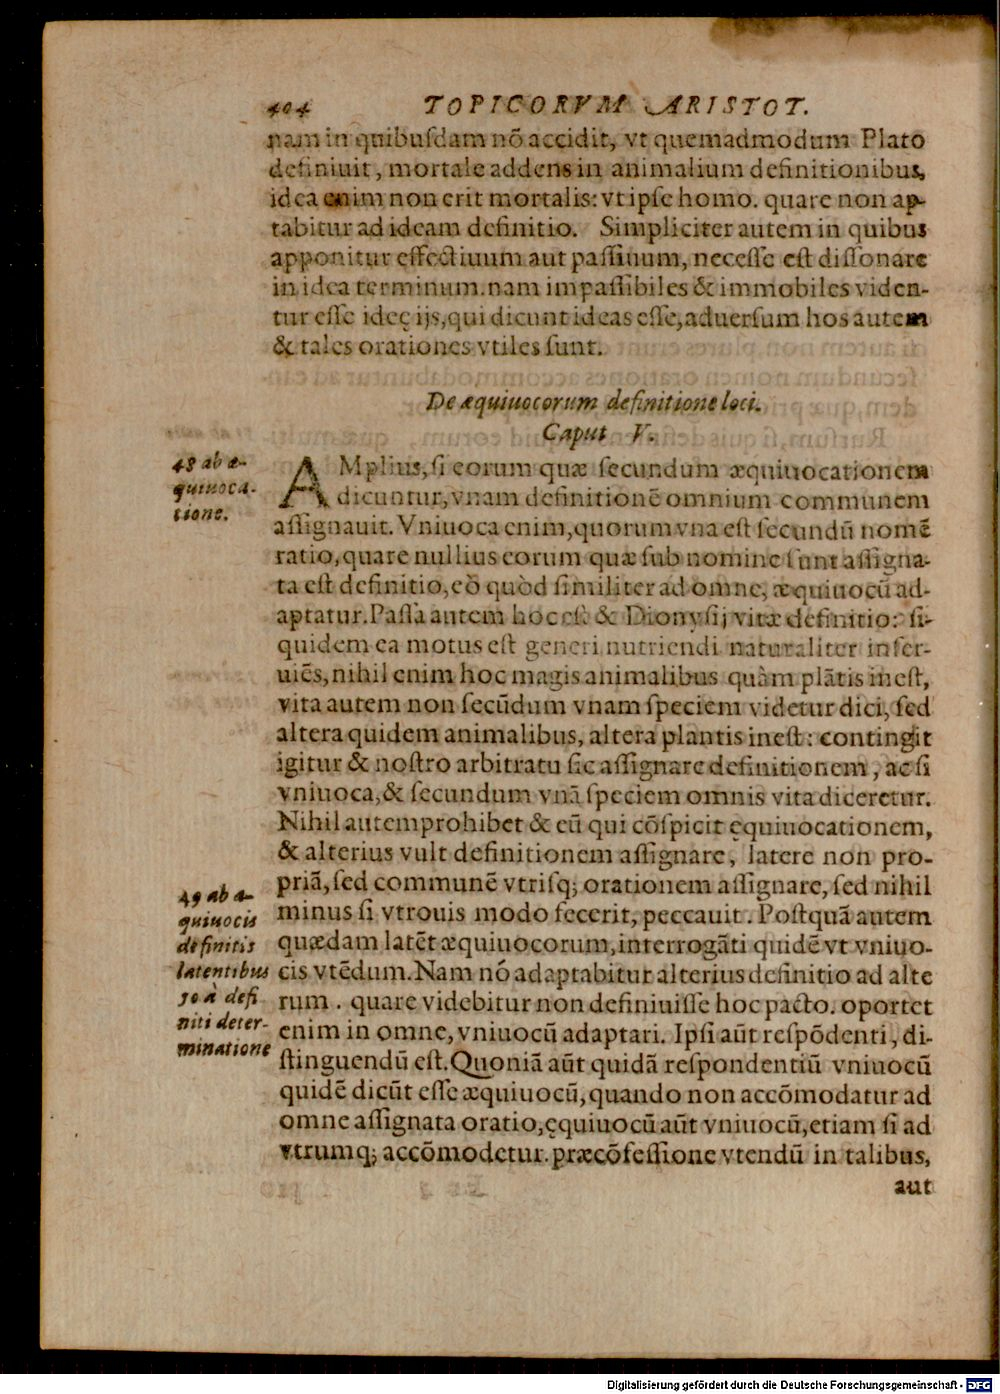 404 TOPICORVM ARISTOT.
nam in quibusdam nō accidit, vt quemadmodum Plato
definiuit, mortale addens in animalium definitionibus,
idea enim non erit mortalis: vt ipse homo. quare non ap-
tabitur ad ideam definitio. Simpliciter autem in quibus
apponitur effectiuum aut passiuum, necesse est dissonare
in idea terminum. nam impassibiles & immobiles viden-
tur esse ideę ijs, qui dicunt ideas esse, aduersum hos autem
& tales orationes vtiles sunt.
De æquiuocorum definitione loci.
Caput V.
48 ab æ-
quiuoca-
tione.
AMplius, si eorum quæ secundum æquiuocationem
dicuntur, vnam definitionē omnium communem
assignauit. Vniuoca enim, quorum vna est secundū nomē
ratio, quare nullius eorum quæ sub nomine sunt assigna-
ta est definitio, eò quòd similiter ad omne, æquiuocū ad-
aptatur. Passa autem hoc est & Dionysij vitæ definitio: si-
quidem ea motus est generi nutriendi naturaliter inser-
uiēs, nihil enim hoc magis animalibus quàm plātis inest,
vita autem non secūdum vnam speciem videtur dici, sed
altera quidem animalibus, altera plantis inest: contingit
igitur & nostro arbitratu sic assignare definitionem, ac si
vniuoca, & secundum vnā speciem omnis vita diceretur.
Nihil autem prohibet & eū qui cōspicit ęquiuocationem,
& alterius vult definitionem assignare, latere non pro-
priā, sed communē vtrisq; orationem assignare, sed nihil
minus si vtrouis modo fecerit, peccauit. Postquā autem
quædam latēt æquiuocorum, interrogāti quidē vt vniuo-
cis vtēdum. Nam nō adaptabitur alterius definitio ad alte
rum. quare videbitur non definiuisse hoc pacto. oportet
enim in omne, vniuocū adaptari. Ipsi aūt respōdenti, di-
stinguendū est. Quoniā aūt quidā respondentiū vniuocū
quidē dicūt esse æquiuocū, quando non accōmodatur ad
omne assignata oratio, ęquiuocū aūt vniuocū, etiam si ad
vtrumq; accōmodetur. præcōfessione vtendū in talibus,
49 ab æ-
quiuocis
definitis
latentibus
50 à defi
niti deter-
minatione
aut
Digitalisierung gefördert durch die Deutsche Forschungsgemeinschaft - DFG